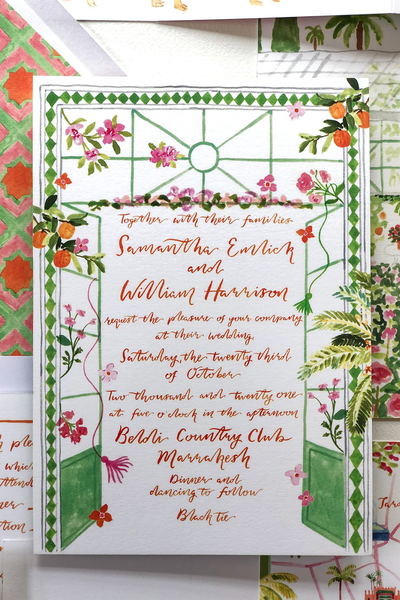 Together with their families
Samantha Emlick
and
William Harrison
request the pleasure of your company
at their wedding
Saturday, the twenty third
of October
Two thousand and twenty one
at five o'clock in the afternoon
Beldi Country Club
Marrakesh
Dinner and
dancing to follow
Black tie